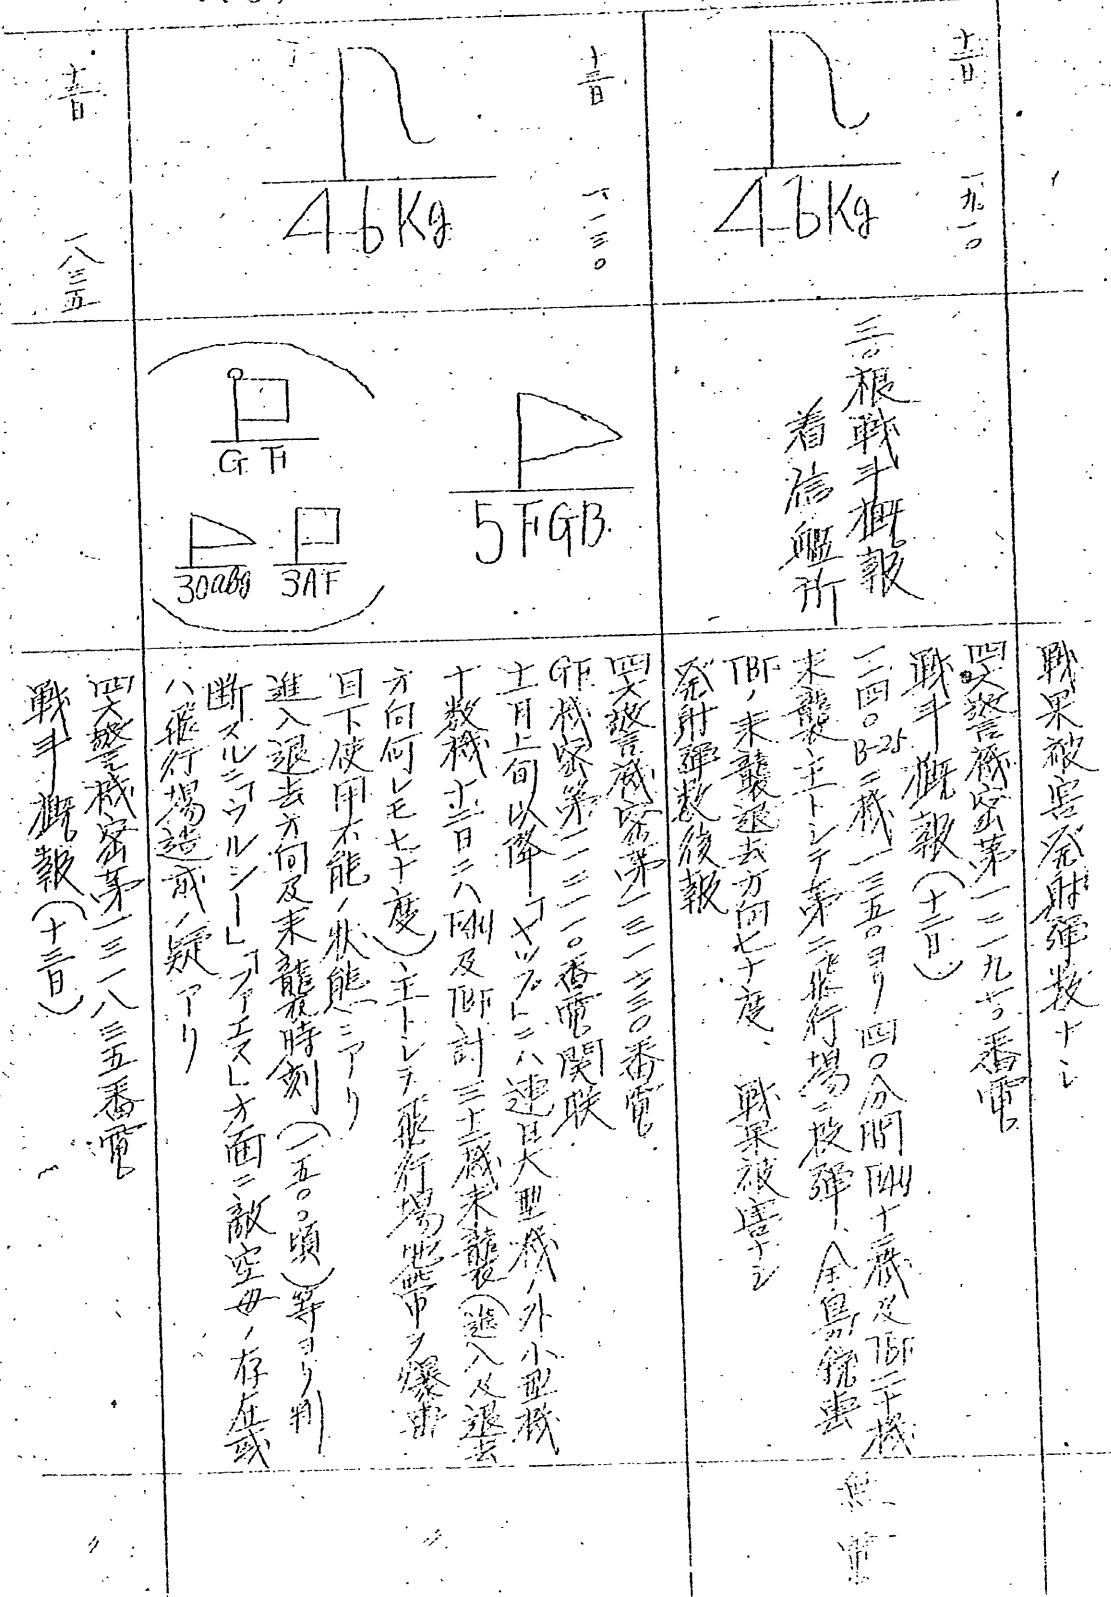 戦果被害発射弾数ナシ
十二日 一九一〇
46Kg
三〇根戦斗概報
着信艦所
四六警機密第一二一九一〇番電
戦斗概報(十二日)
一二四〇B-25二機一三五〇ヨリ四〇分間F4U十二機及TBF二十機
来襲主トシテ第二飛行場ニ投弾、全島銃撃
TBFノ来襲退去方向七十度、戦果被害ナシ
発射弾数後報
無電
十三日 一一三〇
46Kg
5FGB
GF
3AF
30abg
四六警機密第一三一一三〇番電
GF機密第一一二一一〇番電関联
十一月上旬以降「ヤップ」ニハ連日大型機ノ外小型機
十数機十二日ニハF4U及TBF計三十二機来襲(進入及退去
方向何レモ七十度)主トシテ飛行場地帯ヲ爆撃
目下使用不能ノ状態ニアリ
進入退去方向及来襲時刻(一五〇〇頃)等ヨリ判
断スルニ「ウルシー」「ファエス」方面ニ敵空母ノ存在或
ハ飛行場造成ノ疑アリ
〃
十三日 一八三五
四六警機密第一三一八三五番電
戦斗概報(十三日)
〃